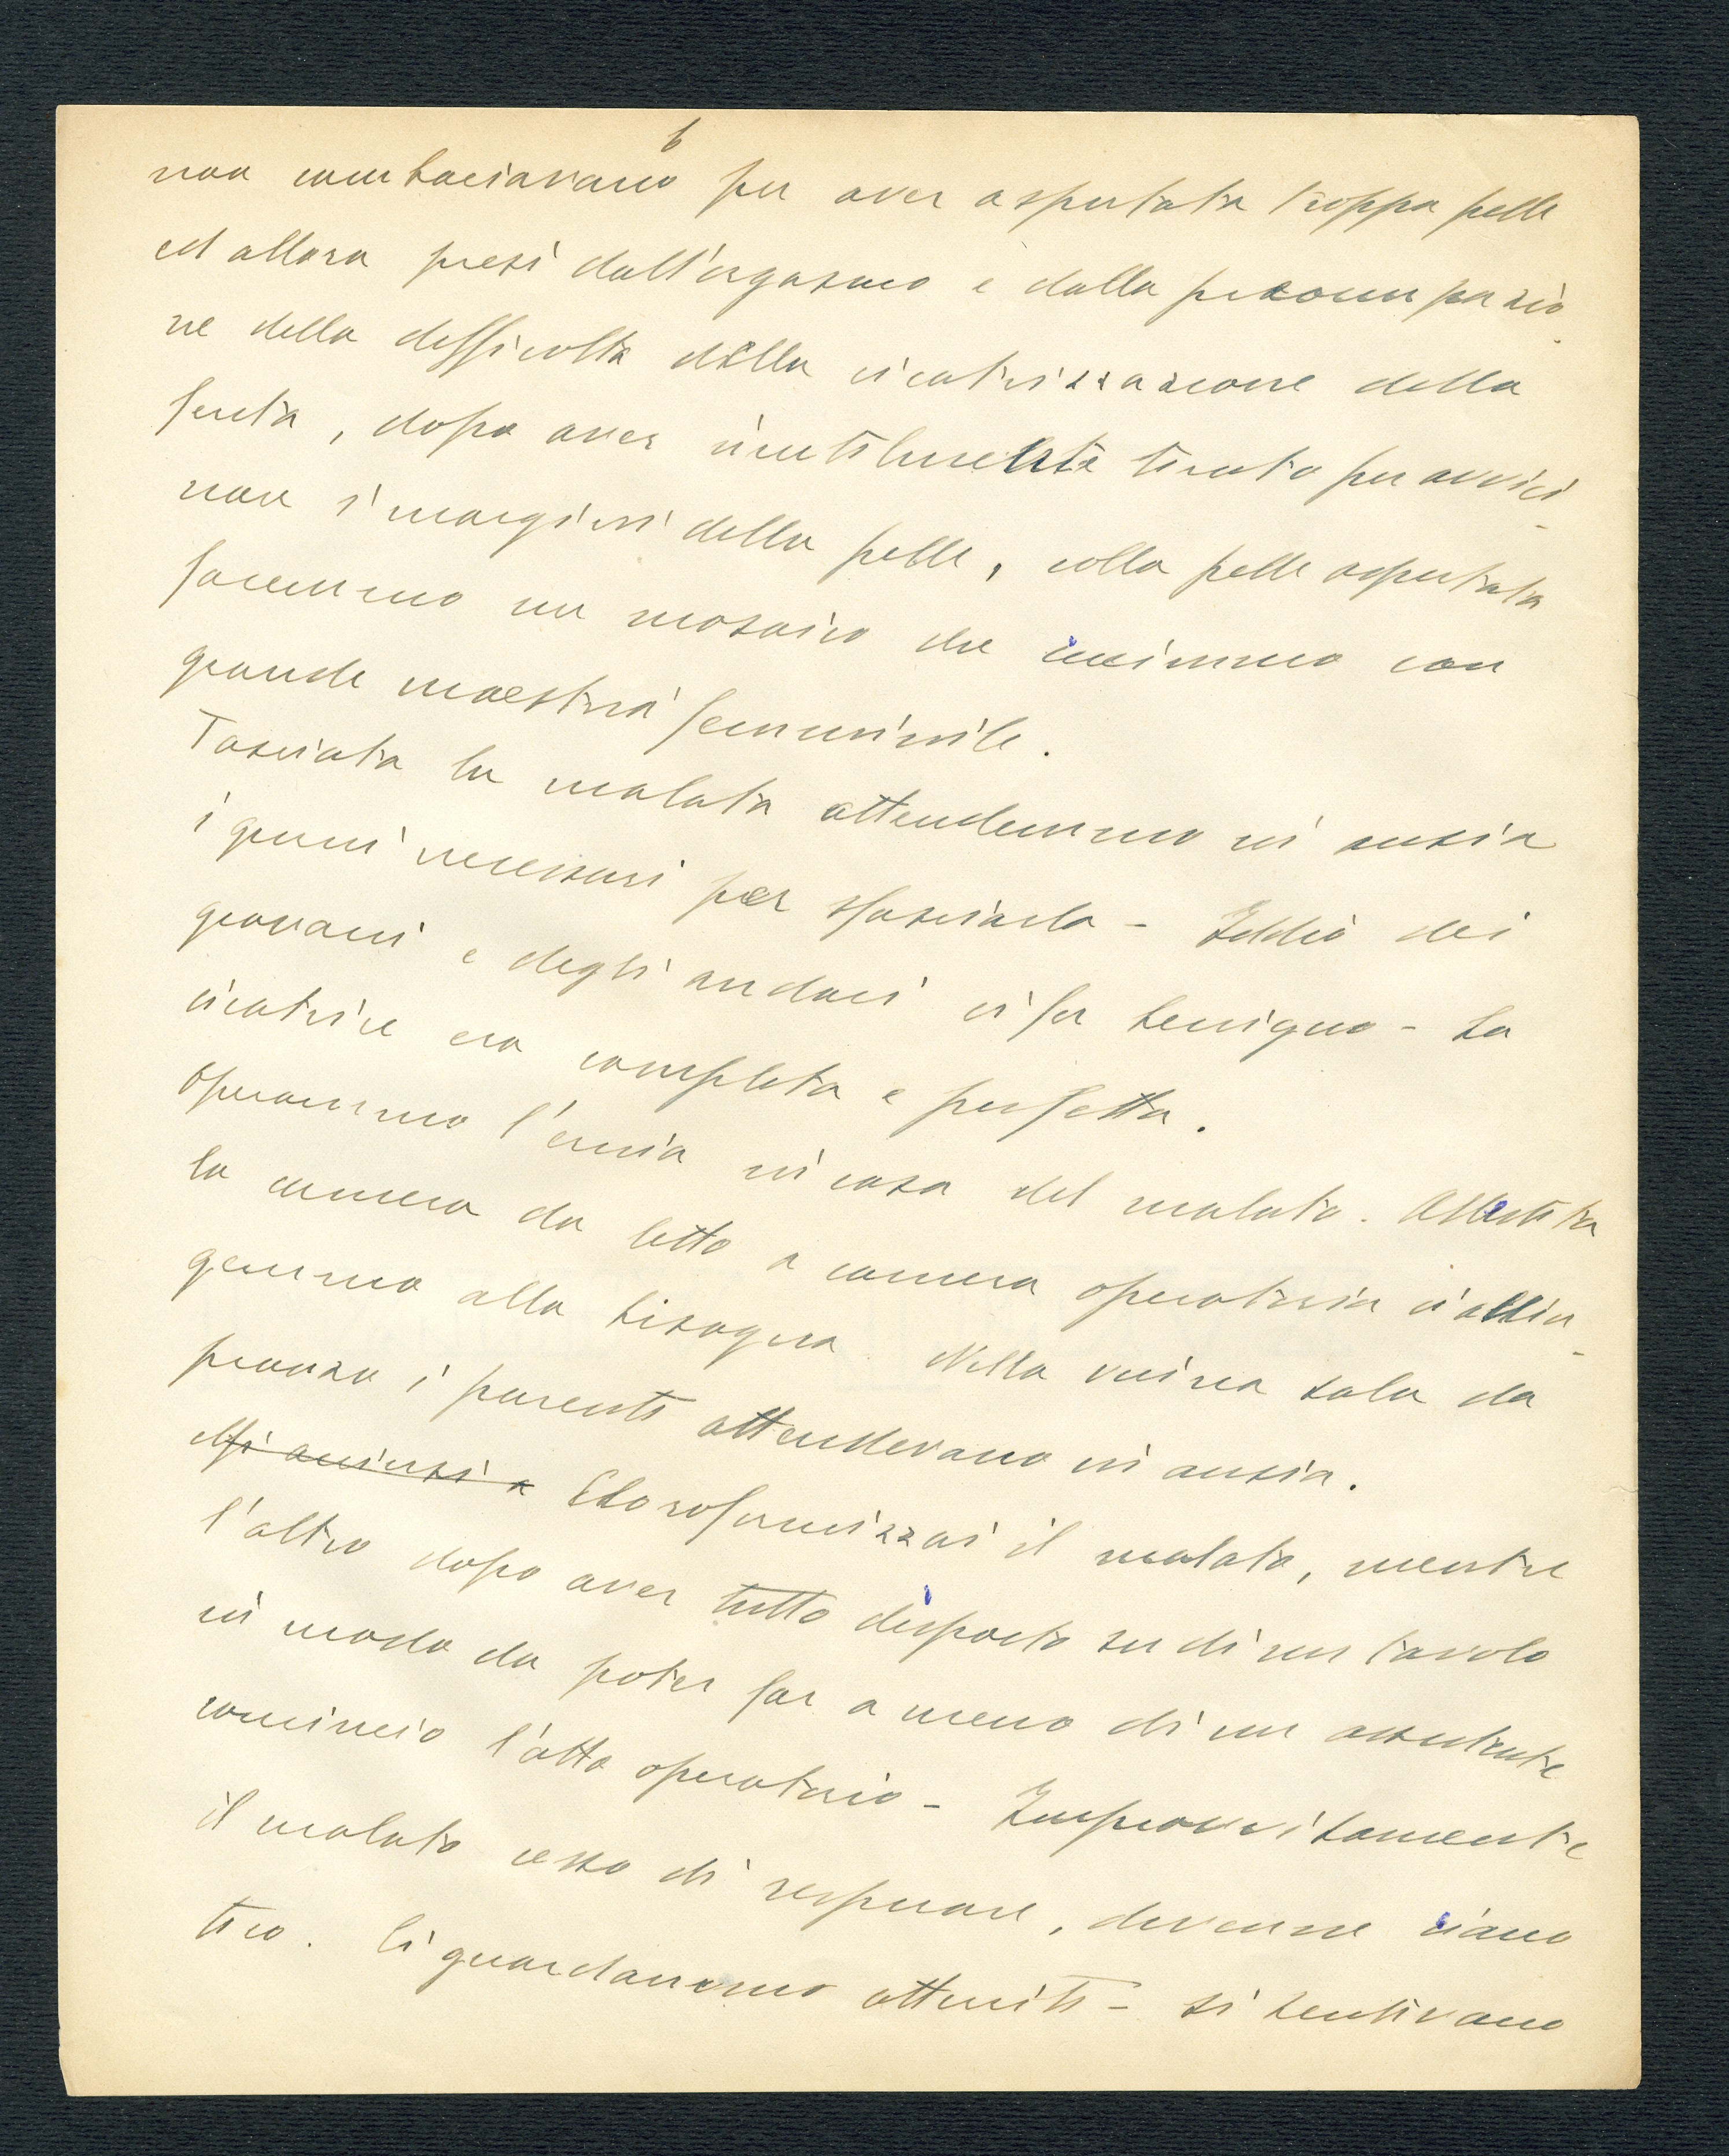 6
non combaciavano per aver asportata troppa pelle
ed allora presi dall'orgasmo e dalla preoccupazio
ne della difficoltà della cicatrizzazione della
ferita, dopo aver inutilmente tirato per avvici-
nare i margini della pelle, colla pelle asportata
facemmo un mosaico che cucimmo con
grande maestria femminile.
Fasciata la malata attendemmo in ansia
i giorni necessari per sfasciarla - Iddio dei
giovani e degli audaci ci fu benigno - La
cicatrice era completa e perfetta.
Operammo l'ernia in casa del malato. Allestita
la camera da letto a camera operatoria ci accin-
gemmo alla bisogna. Nella vicina sala da
pranzo i parenti attendevano in ansia.
Cloroformizzai il malato, mentre
l'altro dopo aver tutto disposto su di un tavolo
in modo da poter far a meno di un assistente
cominciò l'atto operatorio - Improvvisamente
il malato cessò di respirare, divenne ciano
tico. Ci guardammo atterriti - si sentivano